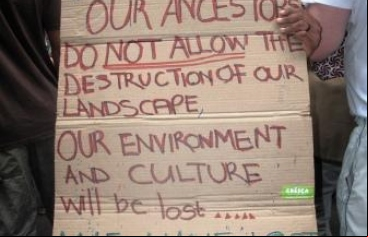 OUR ANCESTORS
DO NOT ALLOW THE
DESTRUCTION OF OUR
LANDSCAPE,
OUR ENVIRONMENT
AND CULTURE
will be lost .....